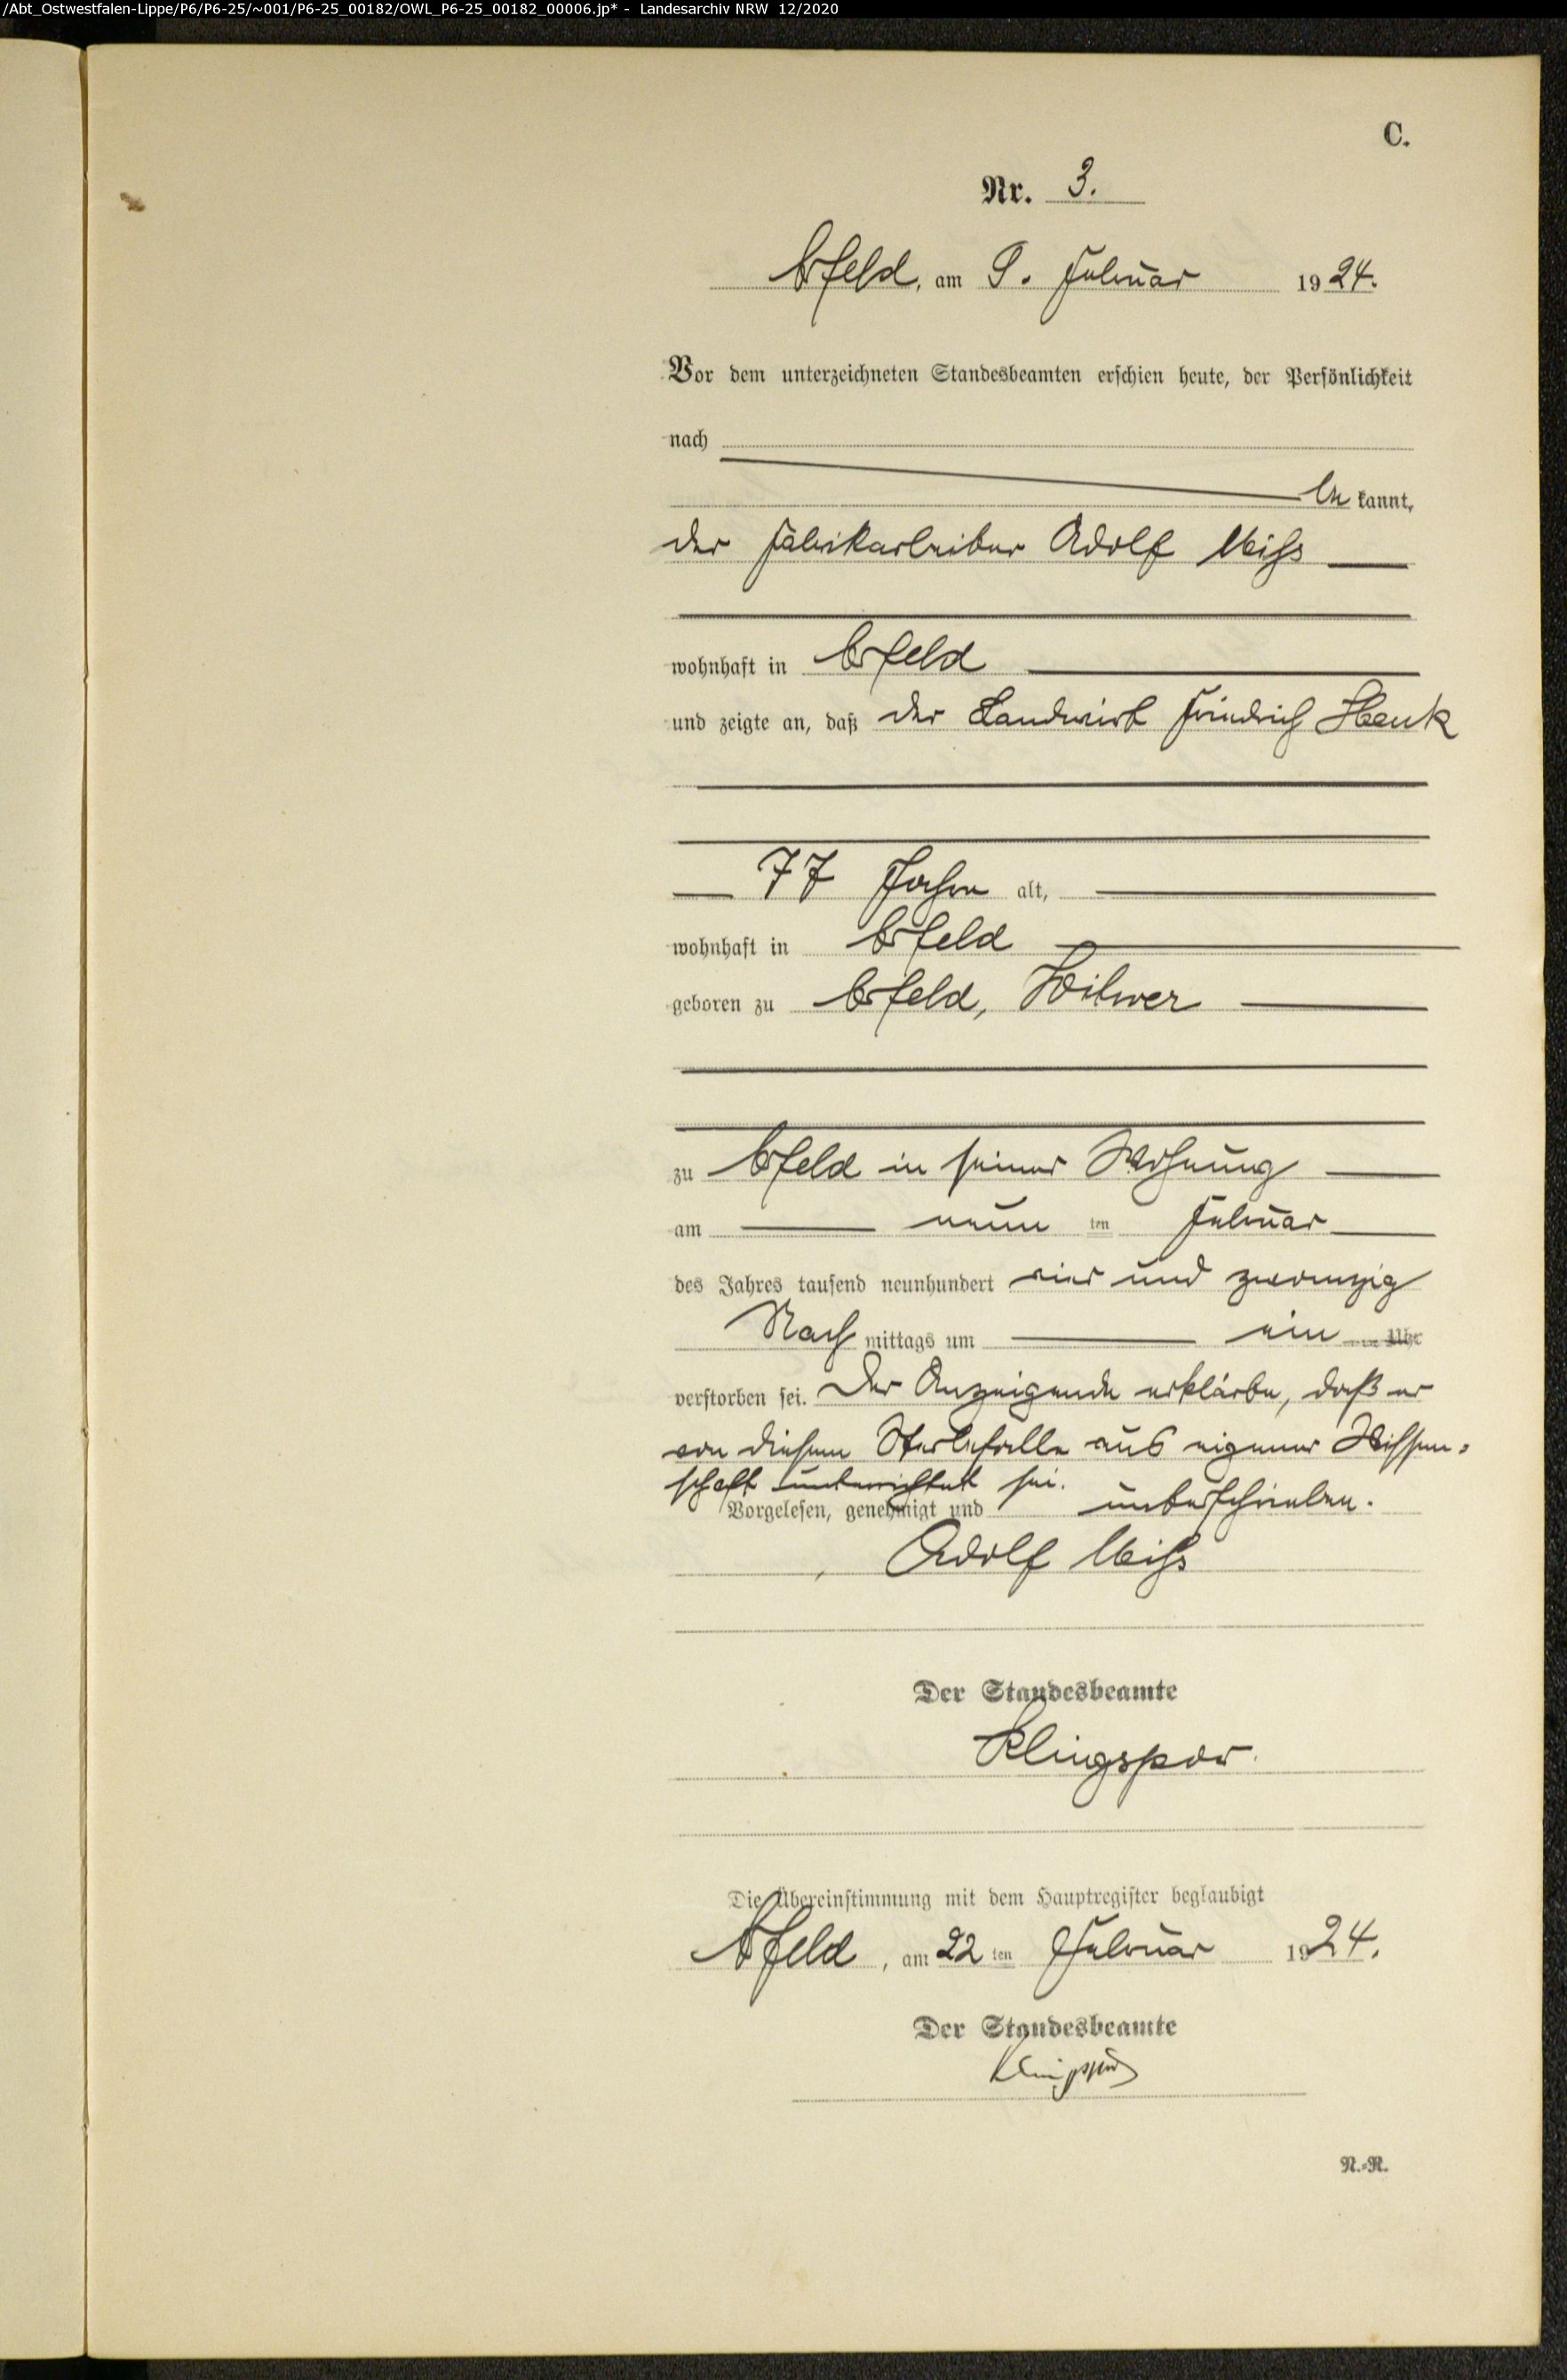 /Abt_Ostwestfalen-Lippe/P6/P6-25/~001/P6-25_00182/OWL_P6-25_00182_00006.jp* - Landesarchiv NRW 12/2020
C.
Nr. 3.
am 9. Februar 1924.
Vor dem unterzeichneten Standesbeamten erschien heute, der Persönlichkeit
nach
be kannt,
der Fabrikarbeiter Adolf
wohnhaft in
und zeigte an, daß der Landwirt Friedrich Henk
77 Jahre alt,
wohnhaft in
geboren zu Witwer
zu in seiner Wohnung
am neun ten Februar
des Jahres tausend neunhundert vier und zwanzig
Nach mittags um ein Uhr
verstorben sei. Der Anzeigende erklärte, daß er
von diesem Sterbefalle aus eigener Wissen-
schaft unterrichtet sei.
Vorgelesen, genehmigt und unterschrieben.
Adolf
Der Standesbeamte
Klingspor.
Die Übereinstimmung mit dem Hauptregister beglaubigt
am 22 ten Februar 1924.
Der Standesbeamte
Klingspor
N.-R.